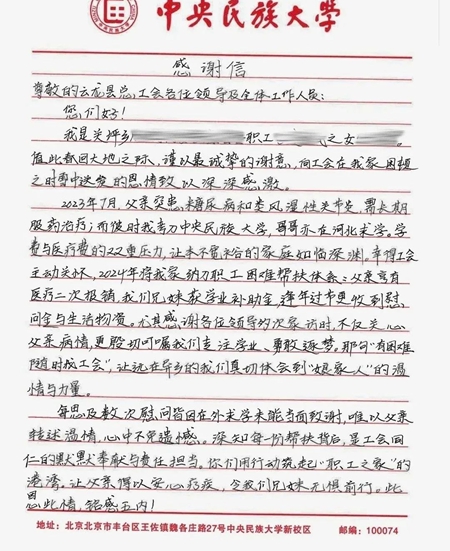 中央民族大学
感谢信
尊敬的云龙县总工会各位领导及全体工作人员：
您们好！
我是关坪乡 职工 之女
值此春回大地之际，谨以最诚挚的谢意，向工会在我家困顿
之时雪中送炭的恩情致以深深感激。
2023年7月，父亲突患糖尿病和类风湿性关节炎，需长期
服药治疗；而彼时我考入中央民族大学，哥哥亦在河北求学。学
费与医疗费的双重压力，让本不富裕的家庭如临深渊。幸得工会
主动关怀，2024年将我家纳入职工困难帮扶体系：父亲享有
医疗二次报销，我们兄妹获学业补助金，逢年过节更收到慰
问金与生活物资。尤其感谢各位领导多次家访时，不仅关心
父亲病情，更殷切叮嘱我们专注学业、勇敢逐梦。那句“有困难
随时找工会”，让远在异乡的我们真切体会到“娘家人”的温
情与力量。
每思及数次慰问皆因在外求学未能当面致谢，唯以父亲
转述温情，心中不免遗憾。深知每一份帮扶背后，是工会同
仁的默默奉献与责任担当。你们用行动筑起“职工之家”的
港湾，让父亲得以安心疗疾，令我们兄妹无惧前行。此
恩此情，铭感五内！
地址：北京北京市丰台区王佐镇魏各庄路27号中央民族大学新校区 邮编：100074